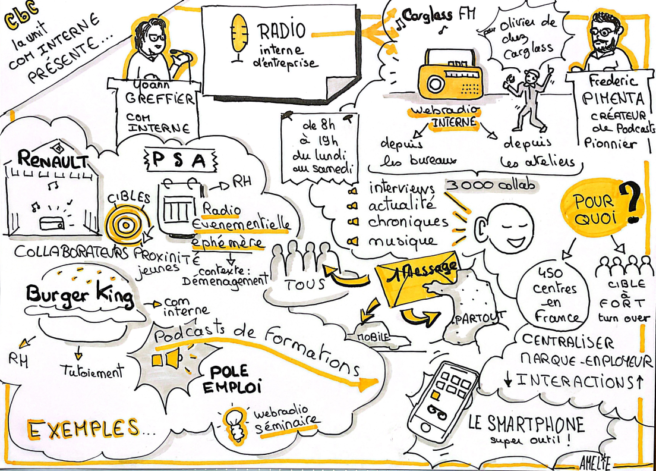 CbC
la unit
COM INTERNE
PRÉSENTE...
Yoann
GREFFIER
COM
INTERNE
RADIO
interne
d'entreprise
Carglass FM
webradio
INTERNE
depuis
les bureaux
depuis
les ateliers
3000 collab
olivier de
chez
Carglass
Frederic
PIMENTA
CRÉATEUR
de Podcasts
Pionnier
de 8h
à 19h
du lundi
au samedi
interviews
actualité
chroniques
musique
RENAULT
CIBLES
COLLABORATEURS
PSA
RH
Radio
Evenementielle
éphémère
Proximité
jeunes
contexte:
Déménagement
Burger King
com
interne
RH
Tutoiement
Podcasts de Formations
POLE
EMPLOI
webradio
séminaire
EXEMPLES...
TOUS
1 Message
MOBILE
PARTOUT
POUR
QUOI ?
450
centres
en
France
CIBLE
à
FORT
turn over
CENTRALISER
MARQUE-EMPLOYEUR
↓INTERACTIONS↑
LE SMARTPHONE
super outil !
AMELIE